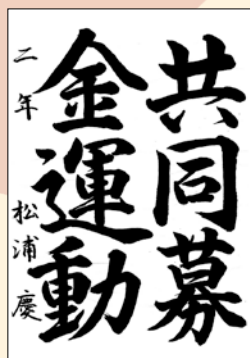 共同募
金運動
二年 松浦慶